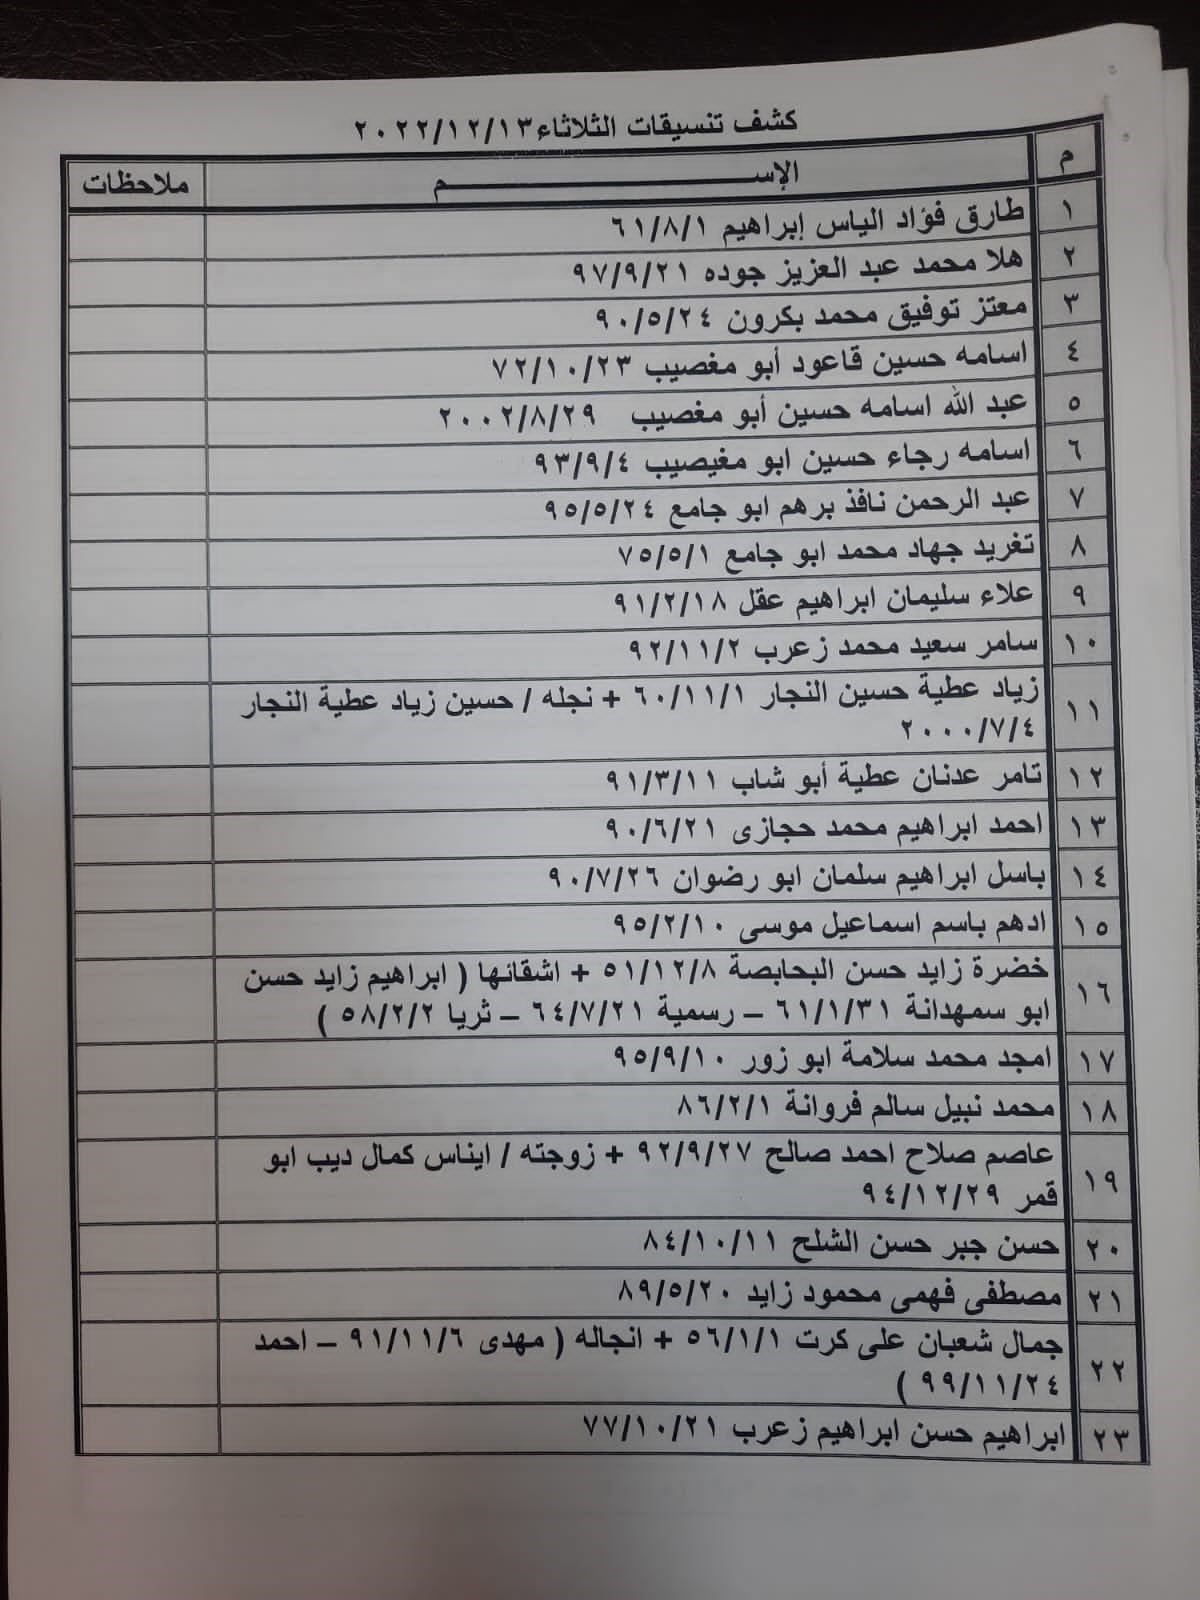 كشف تنسيقات الثلاثاء ٢٠٢٢/١٢/١٣
م الإســـــــــــــم ملاحظات
١ طارق فؤاد الياس إبراهيم ٦١/٨/١
٢ هلا محمد عبد العزيز جوده ٩٧/٩/٢١
٣ معتز توفيق محمد بكرون ٩٠/٥/٢٤
٤ اسامه حسين قاعود أبو مغصيب ٧٢/١٠/٢٣
٥ عبد الله اسامه حسين أبو مغصيب ٢٠٠٢/٨/٢٩
٦ اسامه رجاء حسين ابو مغيصيب ٩٣/٩/٤
٧ عبد الرحمن نافذ برهم ابو جامع ٩٥/٥/٢٤
٨ تغريد جهاد محمد ابو جامع ٧٥/٥/١
٩ علاء سليمان ابراهيم عقل ٩١/٢/١٨
١٠ سامر سعيد محمد زعرب ٩٢/١١/٢
١١ زياد عطية حسين النجار ٦٠/١١/١ + نجله / حسين زياد عطية النجار
٢٠٠٠/٧/٤
١٢ تامر عدنان عطية أبو شاب ٩١/٣/١١
١٣ احمد ابراهيم محمد حجازى ٩٠/٦/٢١
١٤ باسل ابراهيم سلمان ابو رضوان ٩٠/٧/٢٦
١٥ ادهم باسم اسماعيل موسى ٩٥/٢/١٠
١٦ خضرة زايد حسن البحابصة ٥١/١٢/٨ + اشقائها ( ابراهيم زايد حسن
ابو سمهدانة ٦١/١/٣١ – رسمية ٦٤/٧/٢١ – ثريا ٥٨/٢/٢ )
١٧ امجد محمد سلامة ابو زور ٩٥/٩/١٠
١٨ محمد نبيل سالم فروانة ٨٦/٢/١
١٩ عاصم صلاح احمد صالح ٩٢/٩/٢٧ + زوجته / ايناس كمال ديب ابو
قمر ٩٤/١٢/٢٩
٢٠ حسن جبر حسن الشلح ٨٤/١٠/١١
٢١ مصطفى فهمى محمود زايد ٨٩/٥/٢٠
٢٢ جمال شعبان على كرت ٥٦/١/١ + انجاله ( مهدى ٩١/١١/٦ – احمد
٩٩/١١/٢٤ )
٢٣ ابراهيم حسن ابراهيم زعرب ٧٧/١٠/٢١